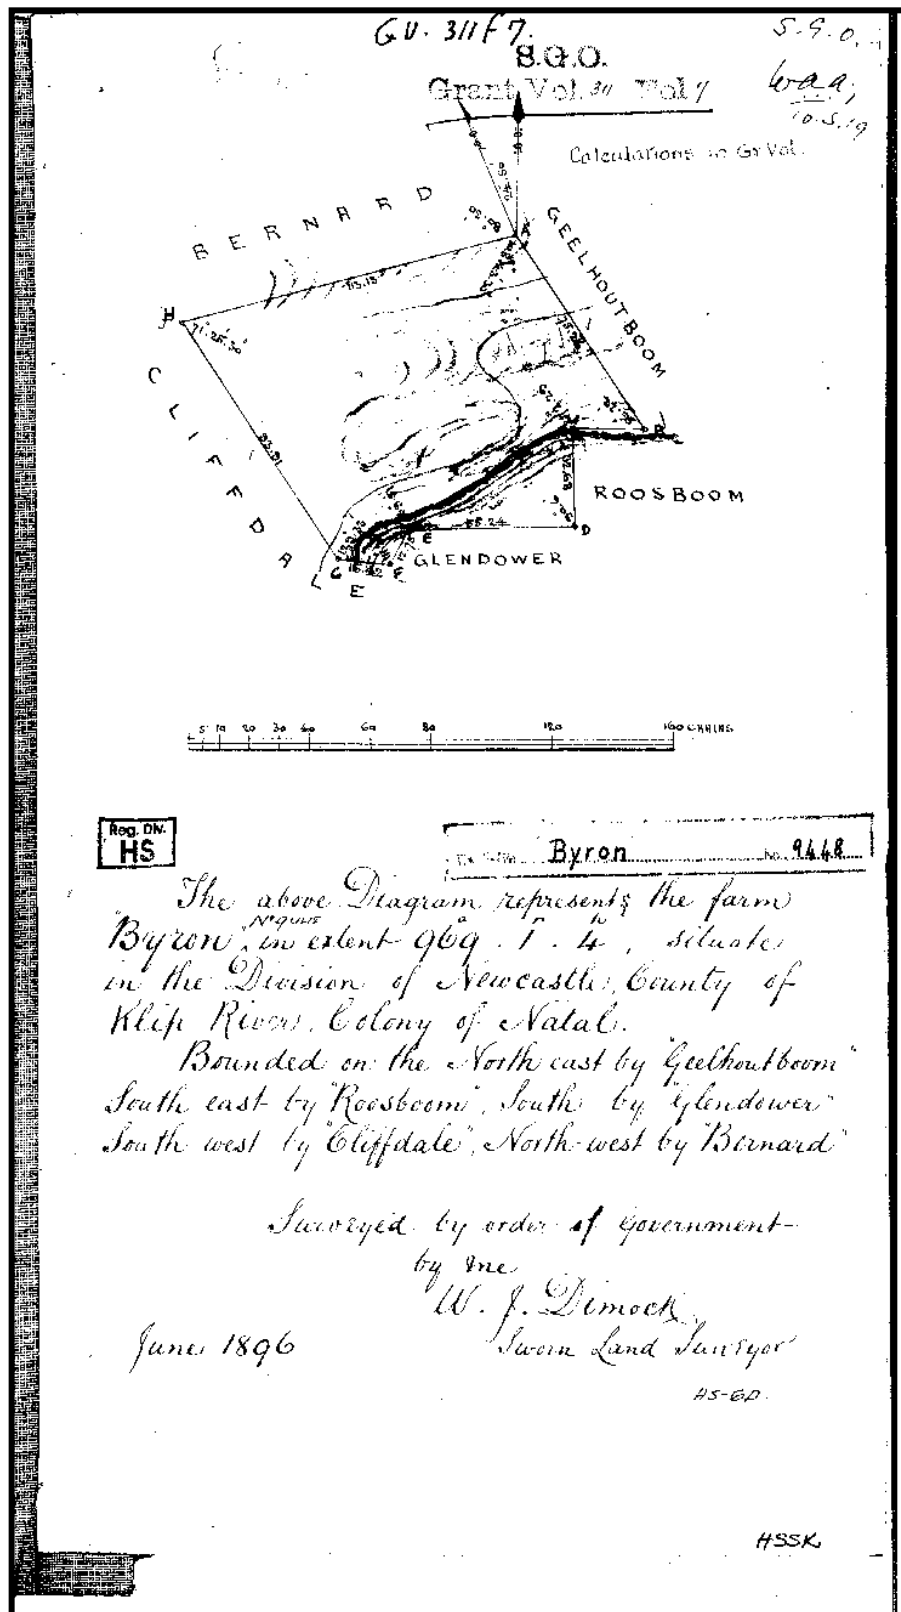 GV. 311 F 7.
S.G.O.
S.G.O.
Grant Vol. 311 Fol 7
10.5.19
Calculations in Gr Vol.
BERNARD
GEELHOUTBOOM
A
H
71°.25'.30"
113.13
CLIFFDALE
93.91
B
ROOSBOOM
D
55.24
E
G
F
GLENDOWER
5 10 20 30 40 60 80 120 160 CHAINS
Reg. Div.
HS
Byron No. 9448
The above Diagram represents the farm
"Byron", in extent 969 a. 1 r. 4 p, situate
in the Division of Newcastle, County of
Klip River, Colony of Natal.
Bounded on the North east by "Geelhoutboom"
South east by "Roosboom", South by "Glendower"
South west by "Cliffdale", North west by "Bernard"
Surveyed by order of Government
by me
W. J. Dimock
June 1896 Sworn Land Surveyor
HS-6D
HSSK